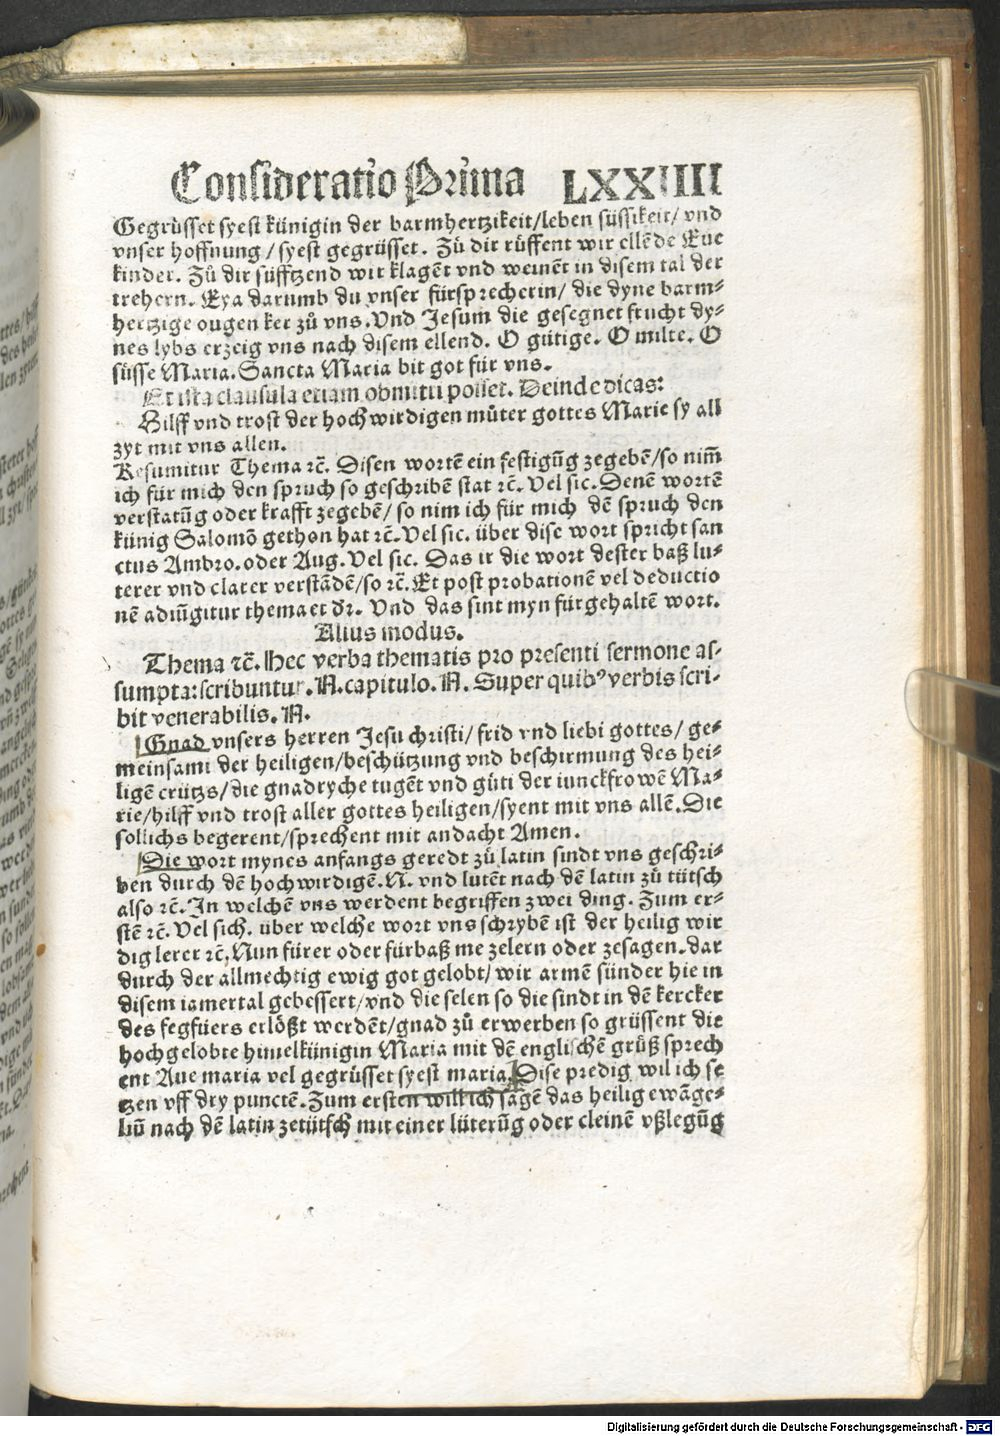 Consideratio Prima LXXIIII
Gegrüsset syest künigin der barmhertzikeit/leben süssikeit/ vnd
vnser hoffnung/syest gegrüsset. Zů dir rüffent wir ellēde Eue
kinder. Zů dir süfftzend wir klagēt vnd weinēt in disem tal der
trehern. Eya darumb du vnser fürsprecherin/ die dyne barm⸗
hertzige ougen ker zů vns. Vnd Jesum die gesegnet frucht dy⸗
nes lybs erzeig vns nach disem ellend. O gütige. O milte. O
süsse Maria. Sancta Maria bit got für vns.
Et ista clausula etiam obmitti posset. Deinde dicas:
Hilff vnd trost der hochwirdigen můter gottes Marie sy all
zyt mit vns allen.
Resumitur Thema ꝛc̄. Disen wortē ein festigūg zegebē/so nim̄
ich für mich den spruch so geschribē stat ꝛc̄. Vel sic. Denē wortē
verstatūg oder krafft zegebē/ so nim ich für mich dē spruch den
künig Salomō gethon hat ꝛc̄. Vel sic. über dise wort spricht san
ctus Ambro. oder Aug. Vel sic. Das ir die wort dester baß lu⸗
terer vnd clarer verstādē/so ꝛc̄. Et post probationē vel deductio
nē adiūgitur thema et dr̄. Vnd das sint myn fürgehaltē wort.
Alius modus.
Thema ꝛc̄. Hec verba thematis pro presenti sermone as⸗
sumpta: scribuntur. N. capitulo. N. Super quibꝰ verbis scri⸗
bit venerabilis. N.
Gnad vnsers herren Jesu christi/ frid vnd liebi gottes/ ge⸗
meinsami der heiligen/beschützung vnd beschirmung des hei⸗
ligē crütz​s/die gnadryche tugēt vnd güti der iunckfrowē Ma⸗
rie/hilff vnd trost aller gottes heiligen/syent mit vns allē. Die
sollichs begerent/sprechent mit andacht Amen.
Die wort mynes anfangs geredt zů latin sindt vns geschri⸗
ben durch dē hochwirdigē. N. vnd lutēt nach dē latin zů tütsch
also ꝛc̄. In welchē vns werdent begriffen zwei ding. Zum er⸗
stē ꝛc̄. Vel sich. über welche wort vns schrybē ist der heilig wir
dig lerer ꝛc̄. Nun fürer oder fürbaß me zelern oder zesagen. dar
durch der allmechtig ewig got gelobt/ wir armē sünder hie in
disem iamertal gebessert/vnd die selen so die sindt in dē kercker
des fegfüers erlößt werdēt/gnad zů erwerben so grüssent die
hochgelobte himelkünigin Maria mit dē englischē grůß sprech
ent Aue maria vel gegrüsset syest maria. Dise predig wil ich se
tzen vff dry punctē. Zum ersten will ich sagē das heilig ewāge⸗
liū nach dē latin zetütsch mit einer lüterūg oder cleinē vßlegūg
Digitalisierung gefördert durch die Deutsche Forschungsgemeinschaft - DFG